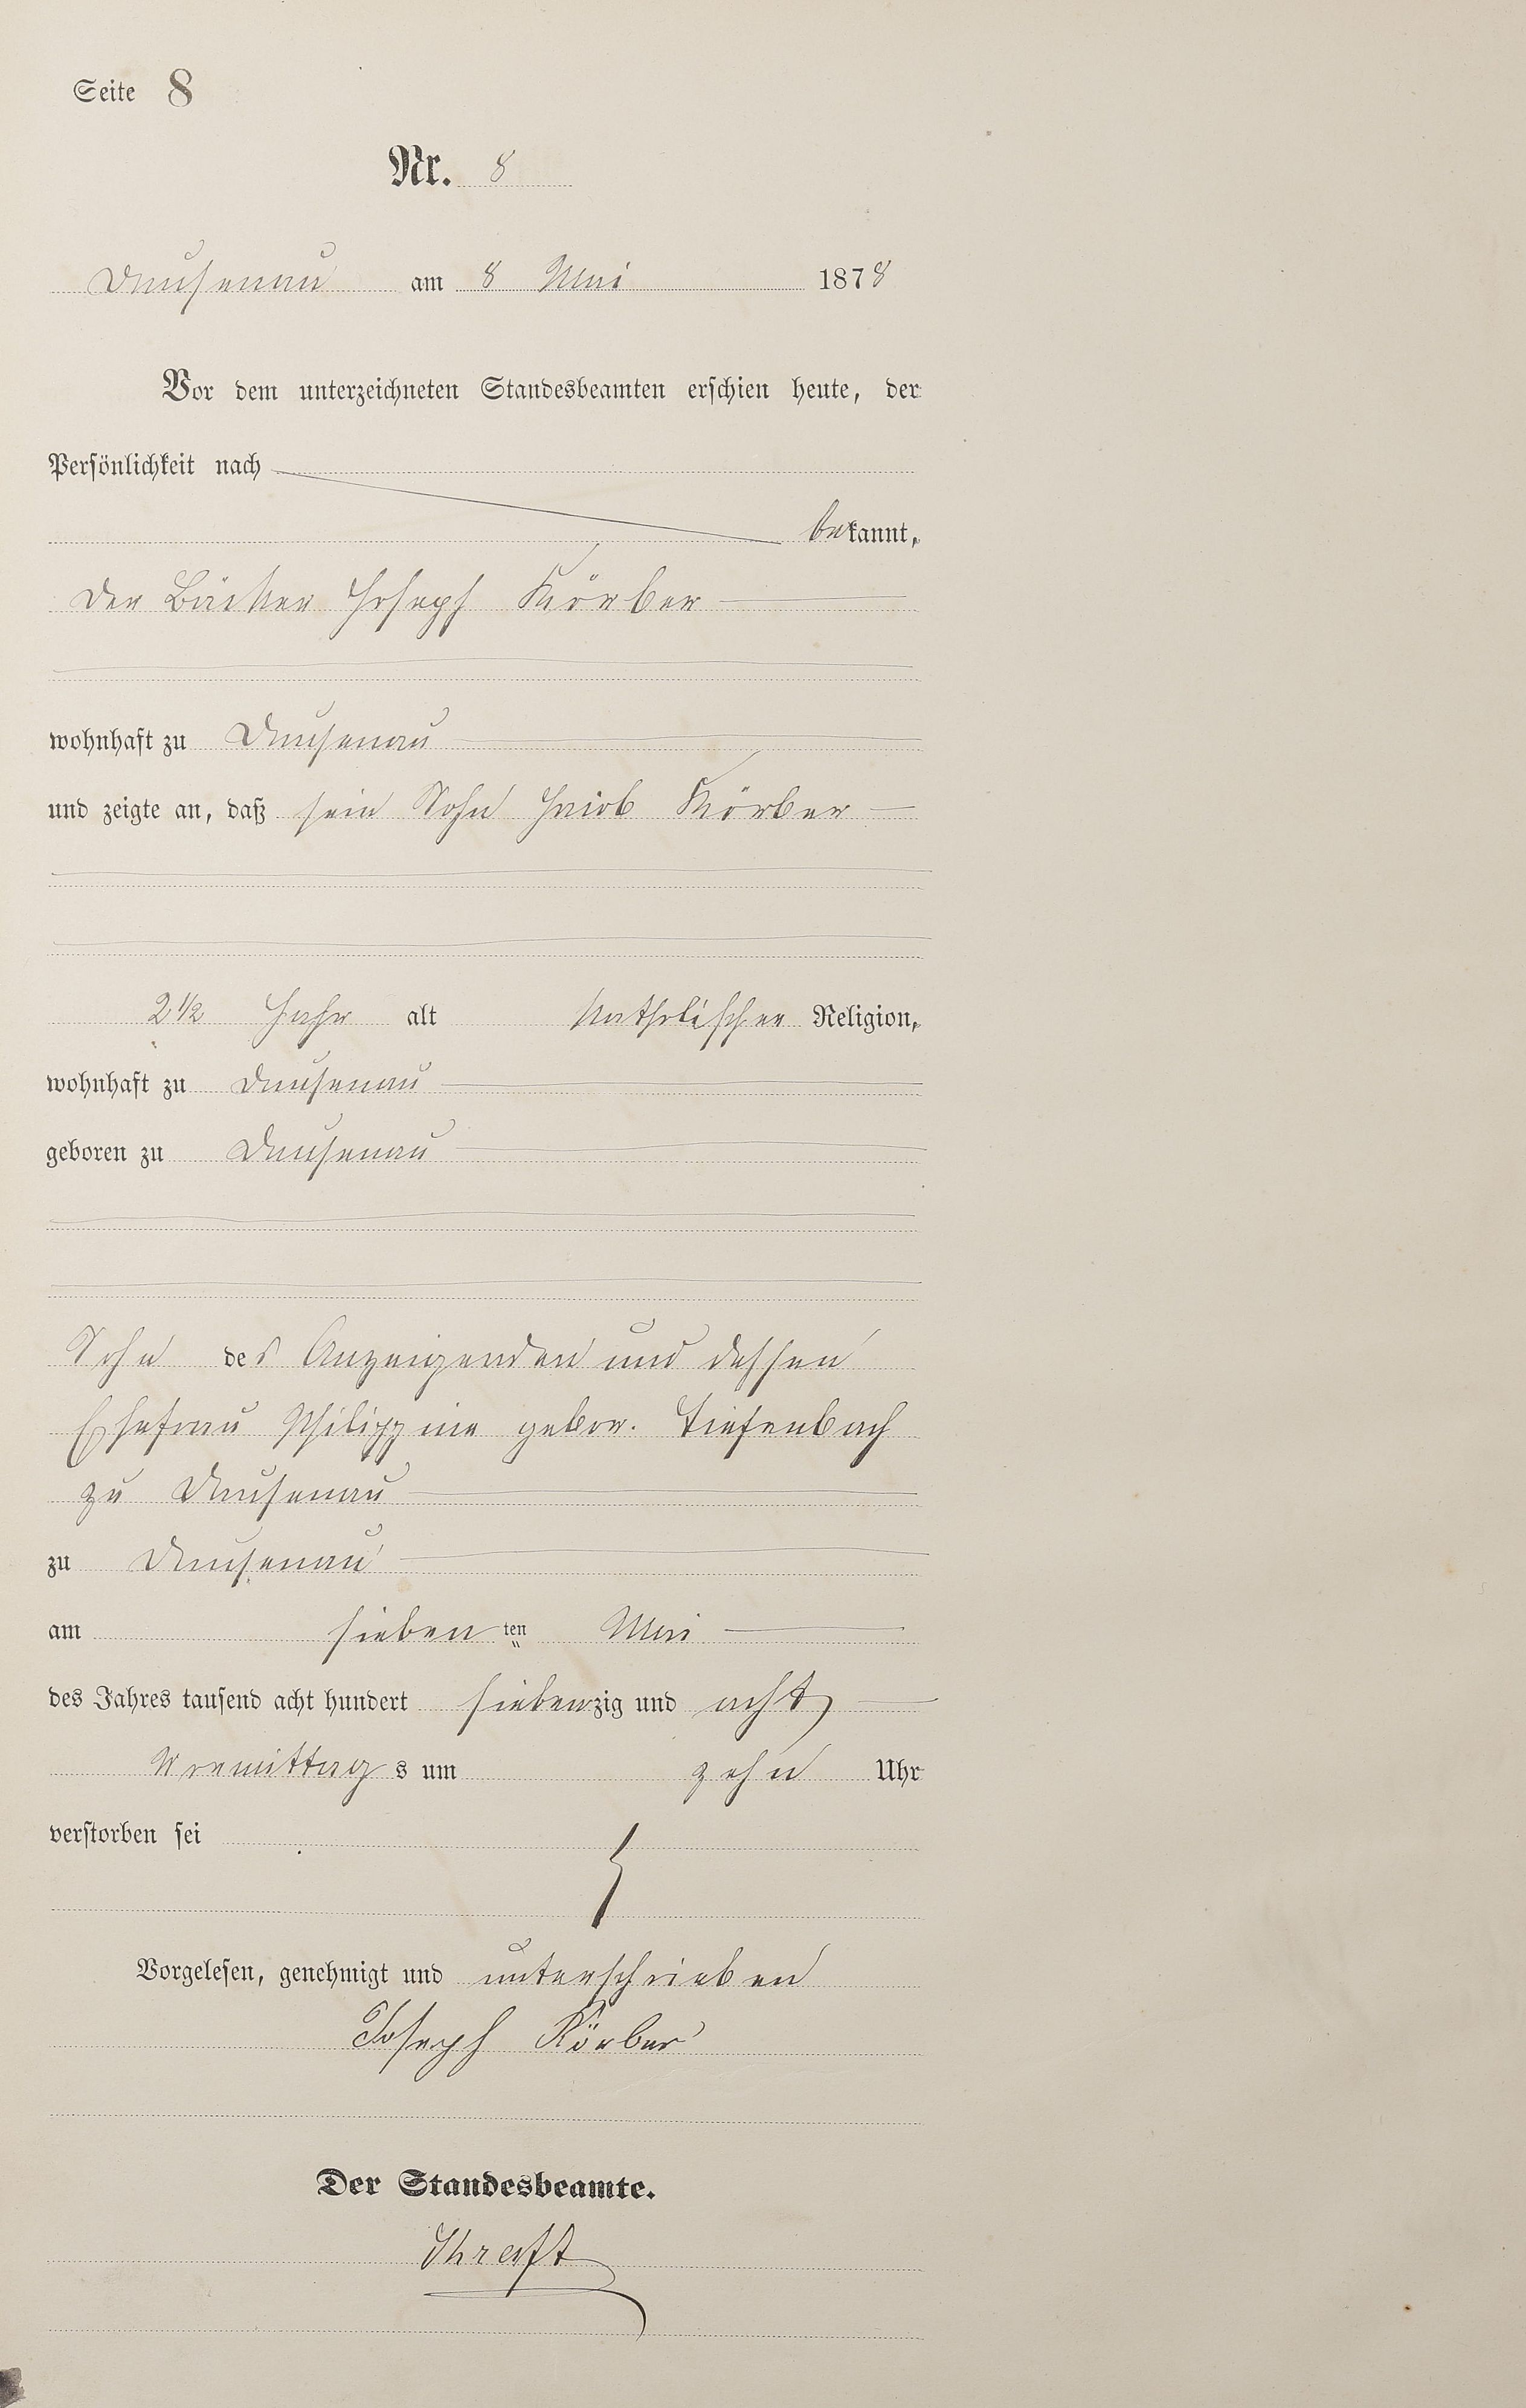 Seite 8
Nr. 8
Dausenau am 8 Mai 1878
Vor dem unterzeichneten Standesbeamten erschien heute, der
Persönlichkeit nach
bekannt,
der Bäcker Joseph Körber
wohnhaft zu Dausenau
und zeigte an, daß sein Sohn Jacob Körber
2 1/2 Jahr alt katholischer Religion,
wohnhaft zu Dausenau
geboren zu Dausenau
Sohn des Anzeigenden und dessen
Ehefrau Philippine gebor. Tiefenbach
zu Dausenau
zu Dausenau
am sieben ten Mai
des Jahres tausend acht hundert siebenzig und acht
Vormittags um zehn Uhr
verstorben sei
Vorgelesen, genehmigt und unterschrieben
Joseph Körber
Der Standesbeamte.